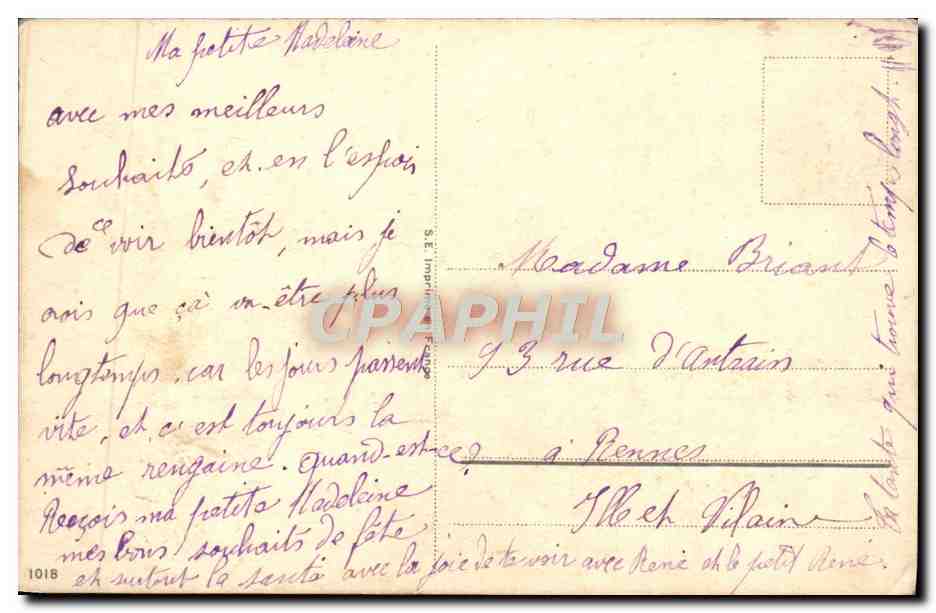 Ma petite Madeleine
avec mes meilleurs
souhaits, et en l'espoir
de ce voir bientôt, mais je
crois que çà va-être plus
longtemps, car les jours passent
vite, et c'est toujours la
même rengaine. quand-est-ce?
Reçois ma petite Madeleine
mes bons souhaits de fête
et surtout la santé avec la joie de te voir avec René et le petit René.
1018
S.E. Imprimé France
CPAPHIL
Madame Briant
93 rue d'Antrain
à Rennes
Ille et Vilaine
tante qui trouve le temps longt.